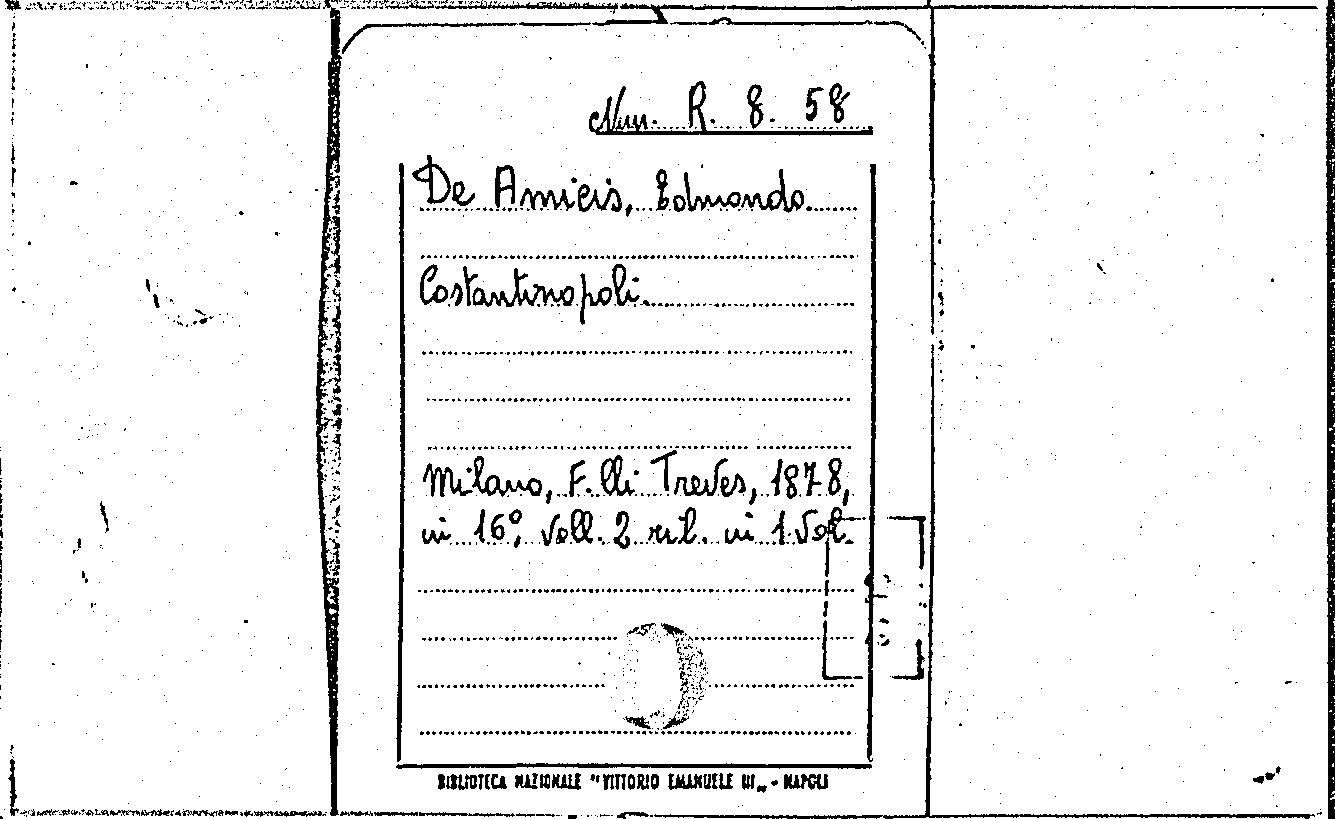 Num. R. 8. 58
De Amicis, Edmondo
Costantinopoli.
Milano, F.lli Treves, 1878,
in 16°, voll. 2 ril. in 1 vol.
BIBLIOTECA NAZIONALE "VITTORIO EMANUELE III„ - NAPOLI